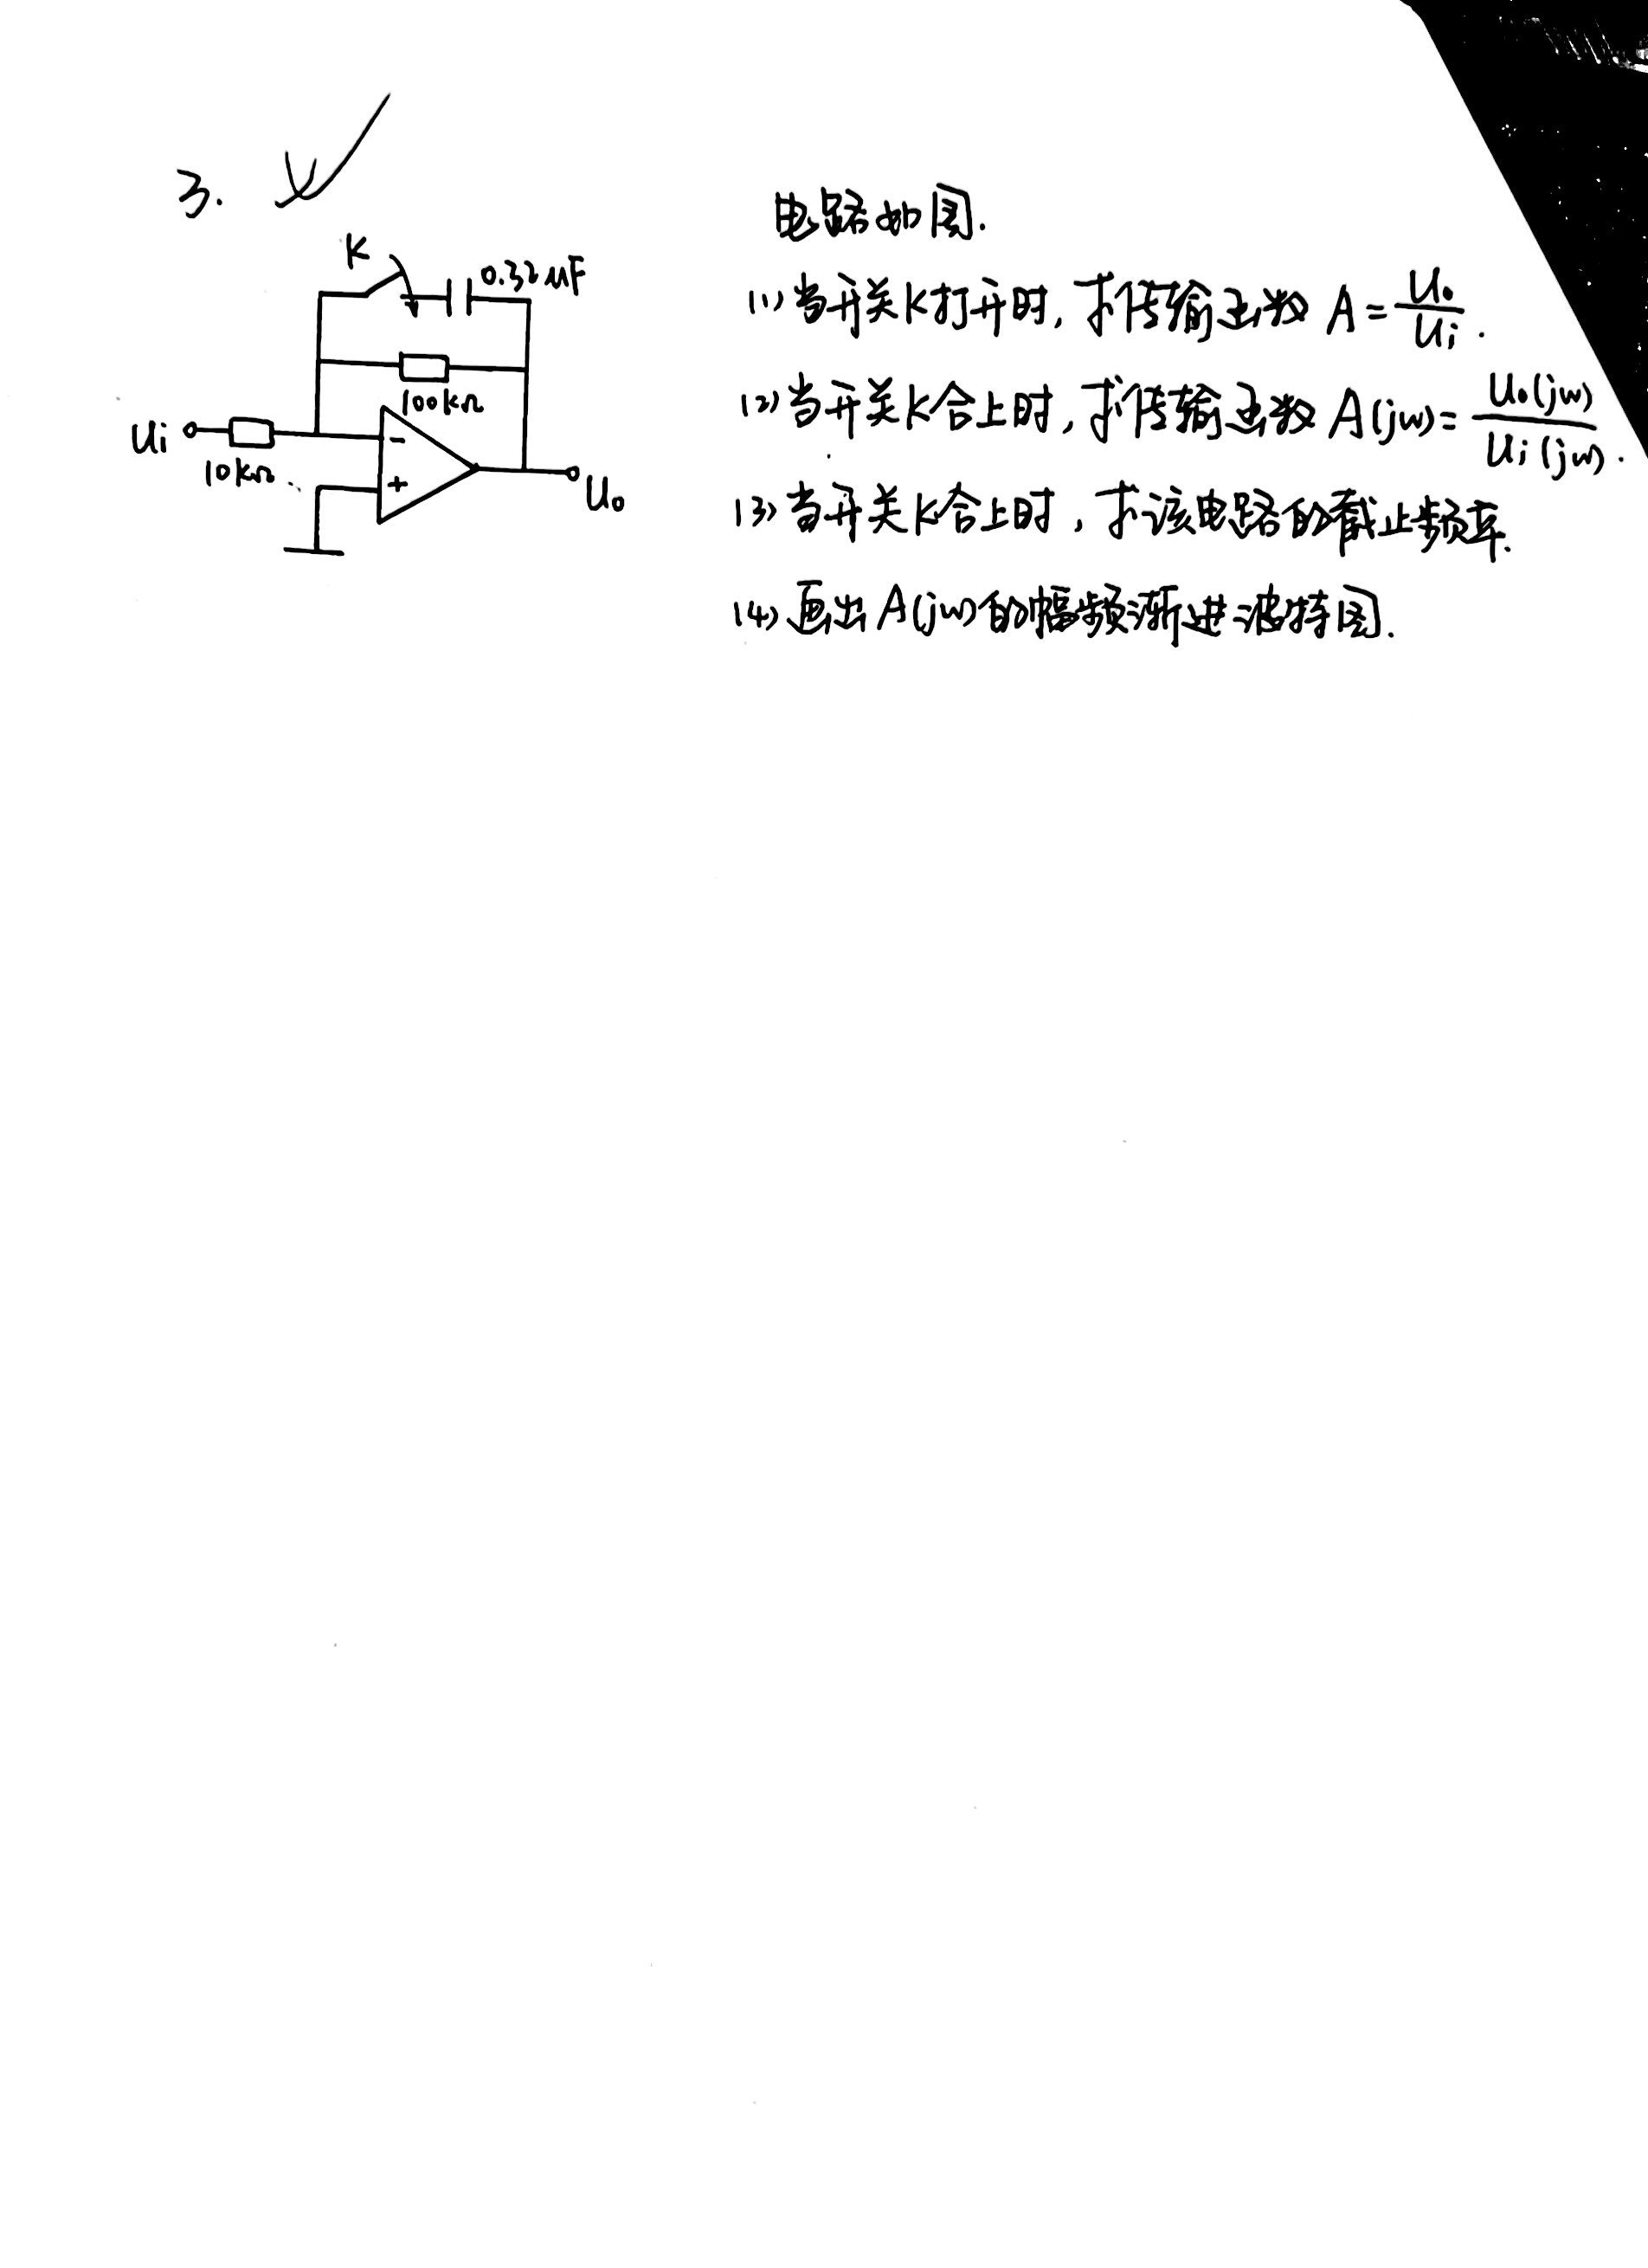 3.
电路如图.
K
0.32μF
100kΩ
Ui
10kΩ
-
+
Uo
(1) 当开关K打开时, 求传输函数 A = Uo/Ui.
(2) 当开关K合上时, 求传输函数 A(jw) = Uo(jw)/Ui(jw).
(3) 当开关K合上时, 求该电路的截止频率.
(4) 画出A(jw)的幅频渐进波特图.